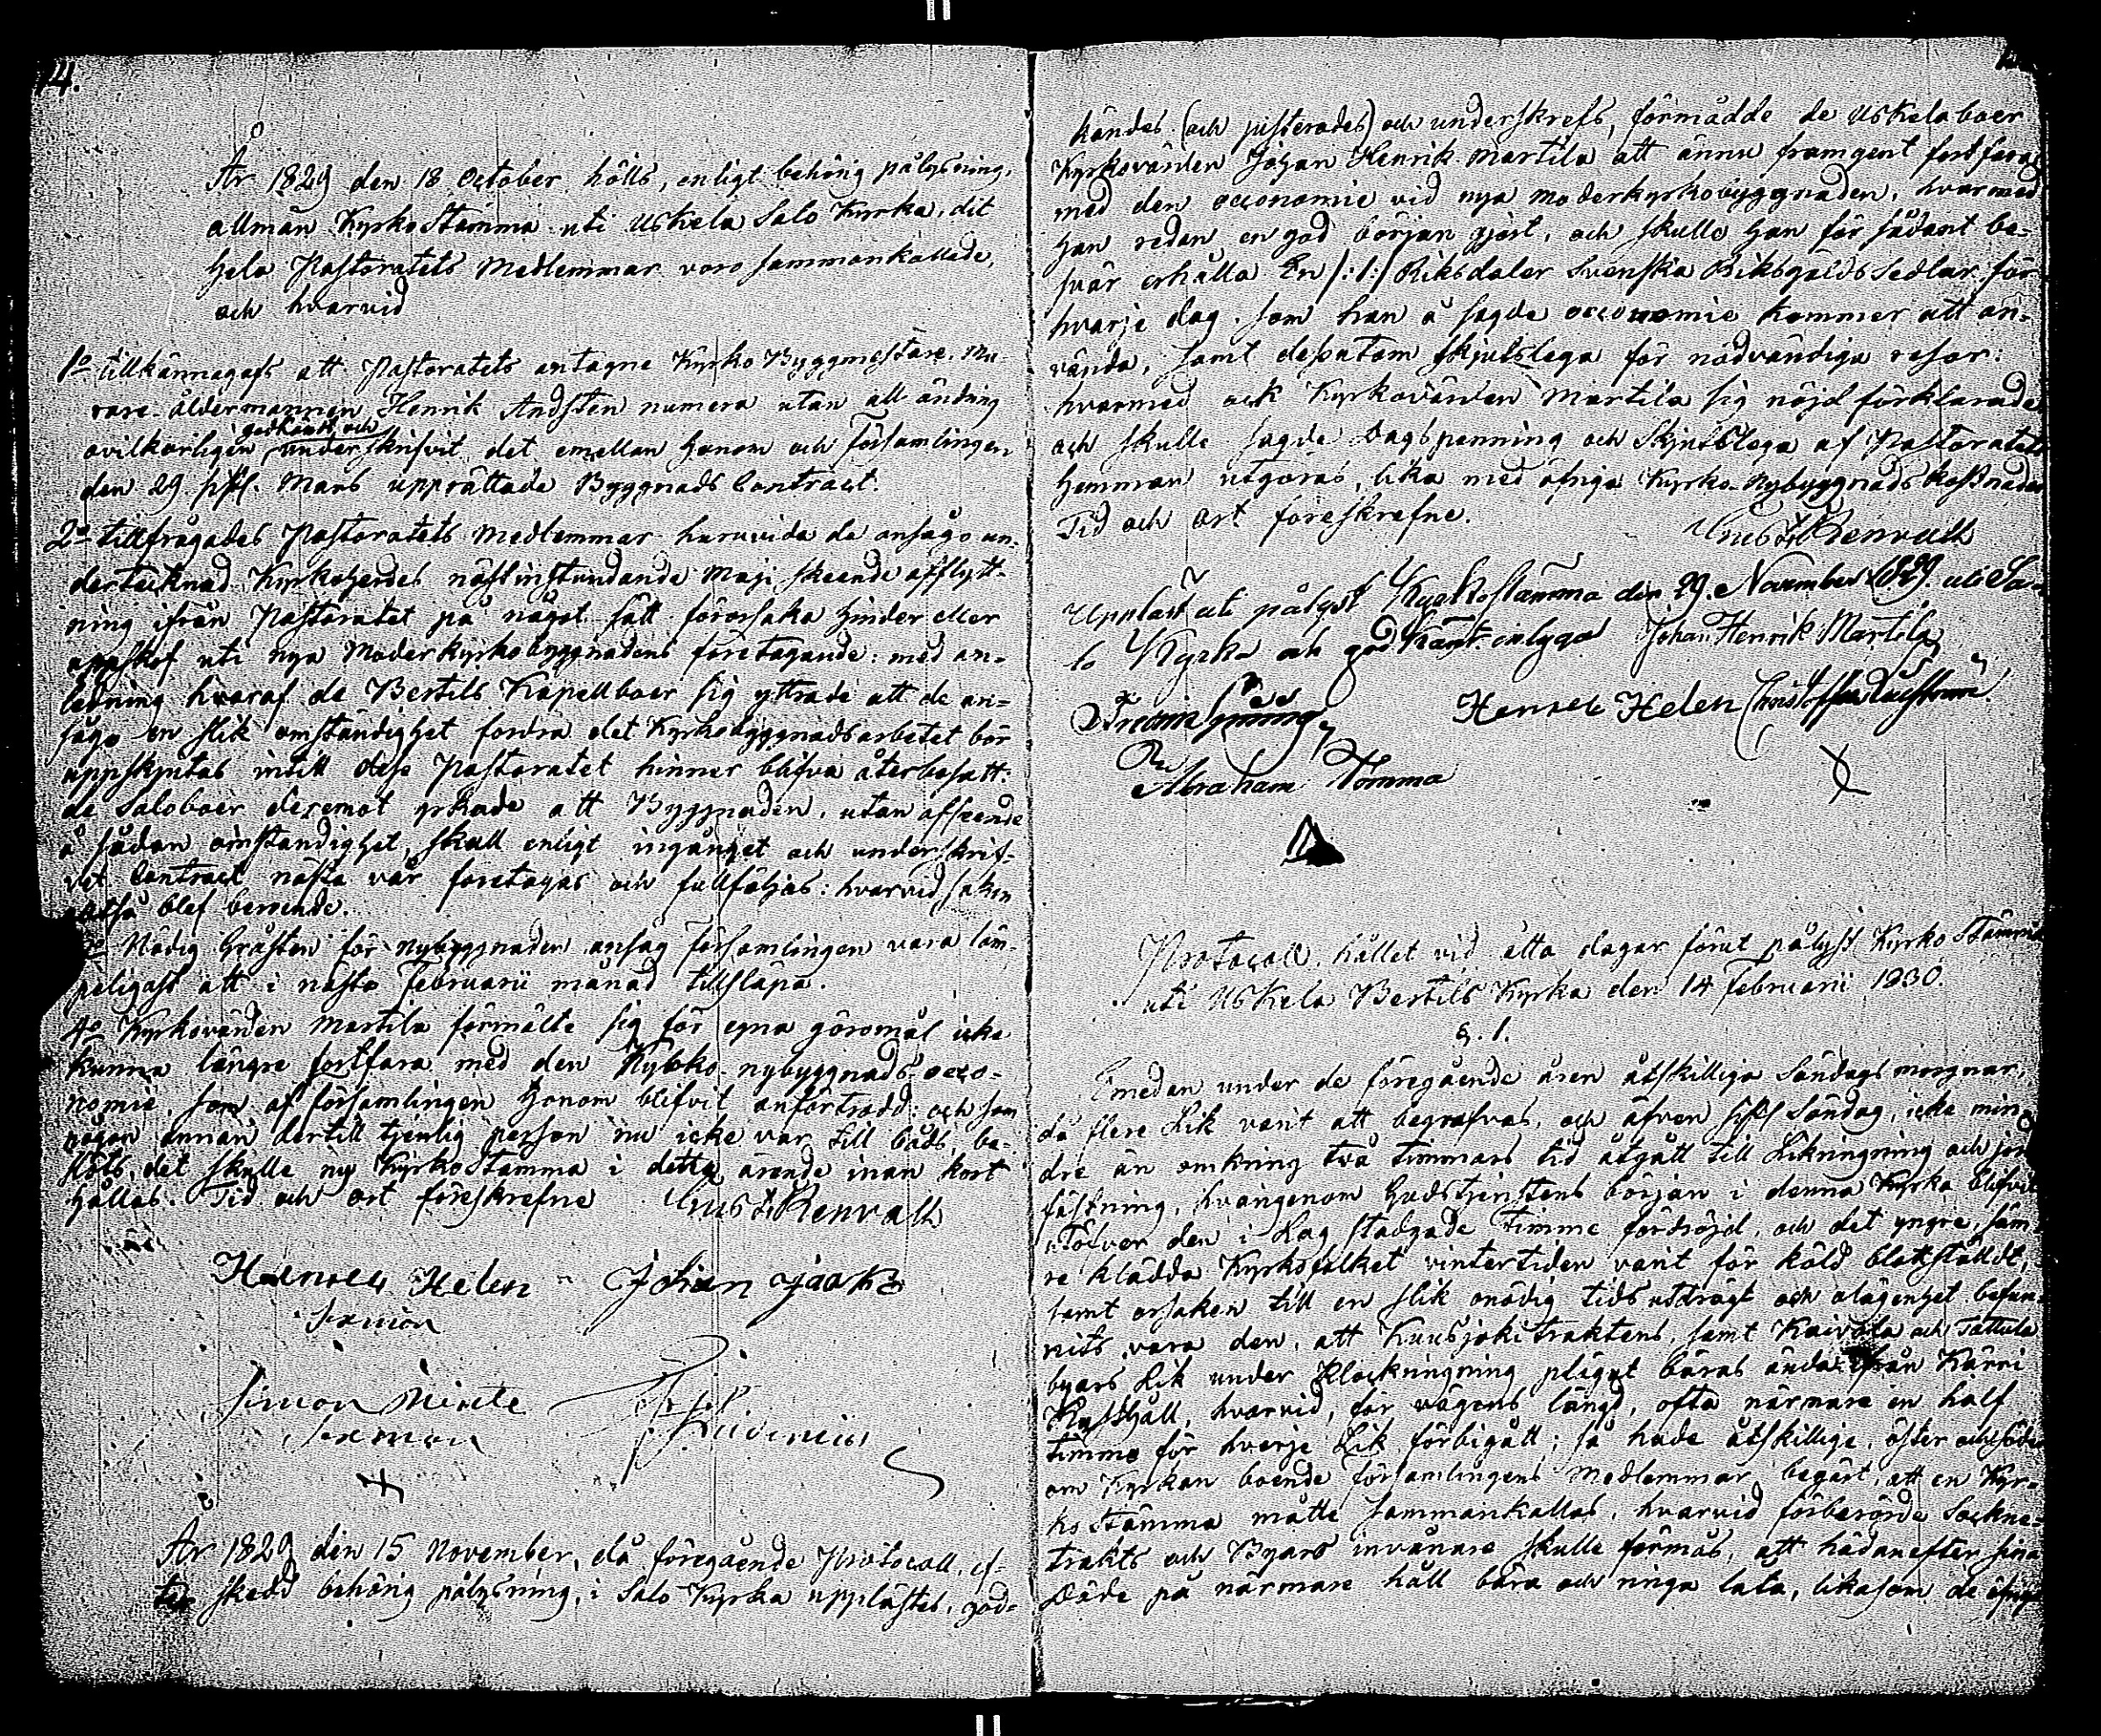 4.
År 1829 den 18 October hölls, enligt behörig pålysning,
allmän KyrkoStämma uti Uskela Salo Kyrka, dit
hela Pastoratets Medlemmar voro sammankallade,
och hvarvid
1o tillkännagafs att Pastoratets antagne Kyrko Byggmästare, Mu-
rare-åldermannen Henrik Andsten numera utan all ändring
godkänt och
ovilkorligen underskrifvit det emellan honom och Församlingen
den 29 sistl. Mars upprättade Byggnads Contract.
2o tillfrågades Pastoratets Medlemmar huruvida de ansågo un-
dertecknad Kyrkoherdes nästinstundande Maji skeende afflytt-
ning ifrån Pastoratet på något sätt förorsaka hinder eller
uppskof uti nya Moderkyrkobyggnadens företagande: med an-
ledning hvaraf de Bertils Kapellboer sig yttrade att de an-
sågo en slik omständighet fordra det Kyrkobyggnadsarbetet bör
uppskjutas intill dess Pastoratet hinner blifva återbesatt:
de Saloboer deremot yrkade att Byggnaden, utan afseende
å sådan omständighet, skall enligt ingånget och underskrif-
vit Contract nästa vår företagas och fullföljas: hvarvid saken
också blef beroende.
Nödig Gråsten för nybyggnaden ansåg församlingen vara läm-
peligast att i nästa Februarii månad tillsläpa.
4o Kyrkovärden Martila förmälte sig för egna göromål icke
kunna längre fortfara med den Kyrko-nybyggnads-oeco-
nomie, som af församlingen honom blifvit anförtrodd: och som
någon annan dertill tjenlig person nu icke var till båds, be-
slöts, det skulle ny KyrkoStämma i detta ärende inan kort
hållas. Tid och ort föreskrefne Gust. Renvall
Henrik Helen Johan Jaakko
Sexman
Simon
Sexman
År 1829 den 15 November, då föregående Protocoll, ef-
ter skedd behörig pålysning, i Salo Kyrka upplästes, god-
kändes (och justerades) och underskrefs, förmådde de Uskelaboer
Kyrkovärden Johan Henrik Martila att ännu framgent fortfara
med den oeconomie vid nya moderkyrkobyggnaden, hvarmed
han redan en god början gjort, och skulle han för sådant be-
svär erhålla En /:1:/ Riksdaler Svenska Riksgälds Sedlar för
hvarje dag, som han å sagde oeconomie kommer att an-
vända, samt dessutom skjutslega för nödvändiga resor:
hvarmed ock Kyrkovärden Martila sig nöjd förklarade
och skulle sagde Dagspenning och Skjutslega af Pastoratets
Hemman utgöras, lika med öfriga Kyrko-Nybyggnads kostnader
Tid och ort föreskrefne.
Gust. Renvall
Uppläst uti pålyst KyrkoStämma den 29. November 1829. uti Sa-
lo Kyrka och godkänt. intyga Johan Henrik Martila
Henrik Helen
Abraham Tomma
Protocoll, hållet vid åtta dagar förut pålyst KyrkoStämma
uti Uskela Bertils Kyrka den 14 Februarii 1830.
§. 1.
Emedan under de föregående åren åtskilliga Söndags morgnar,
då flere Lik varit att begrafvas, och äfven sistl. Söndag, icke min-
dre än omkring två timmars tid åtgått till Likringning och jord-
fästning, hvarigenom Gudstjenstens början i denna Kyrka blifvit
utöfver den i Lag stadgade timme fördröjd, och det yngre, säm-
re klädda Kyrkofolket vintertiden varit för köld blottstäldt,
samt orsaken till en slik onödig tidsutdrägt och olägenhet befun-
nits vara den, att Kuusjokitraktens, samt Kaivola och Tattula
byars Lik under Klockringning plägat bäras ända ifrån Kärri
Rusthåll, hvarvid, för vägens längd, ofta närmare en half
timme för hvarje Lik förbigått; så hade åtskillige, öster och söder
om Kyrkan boende församlingens Medlemmar begärt, att en Kyr-
koStämma måtte sammankallas, hvarvid förberörde Sockne-
trakts och Byars invånare skulle förmås, att hädanefter sina
Döde på närmare håll bära och ringa låta, likasom de öfriga